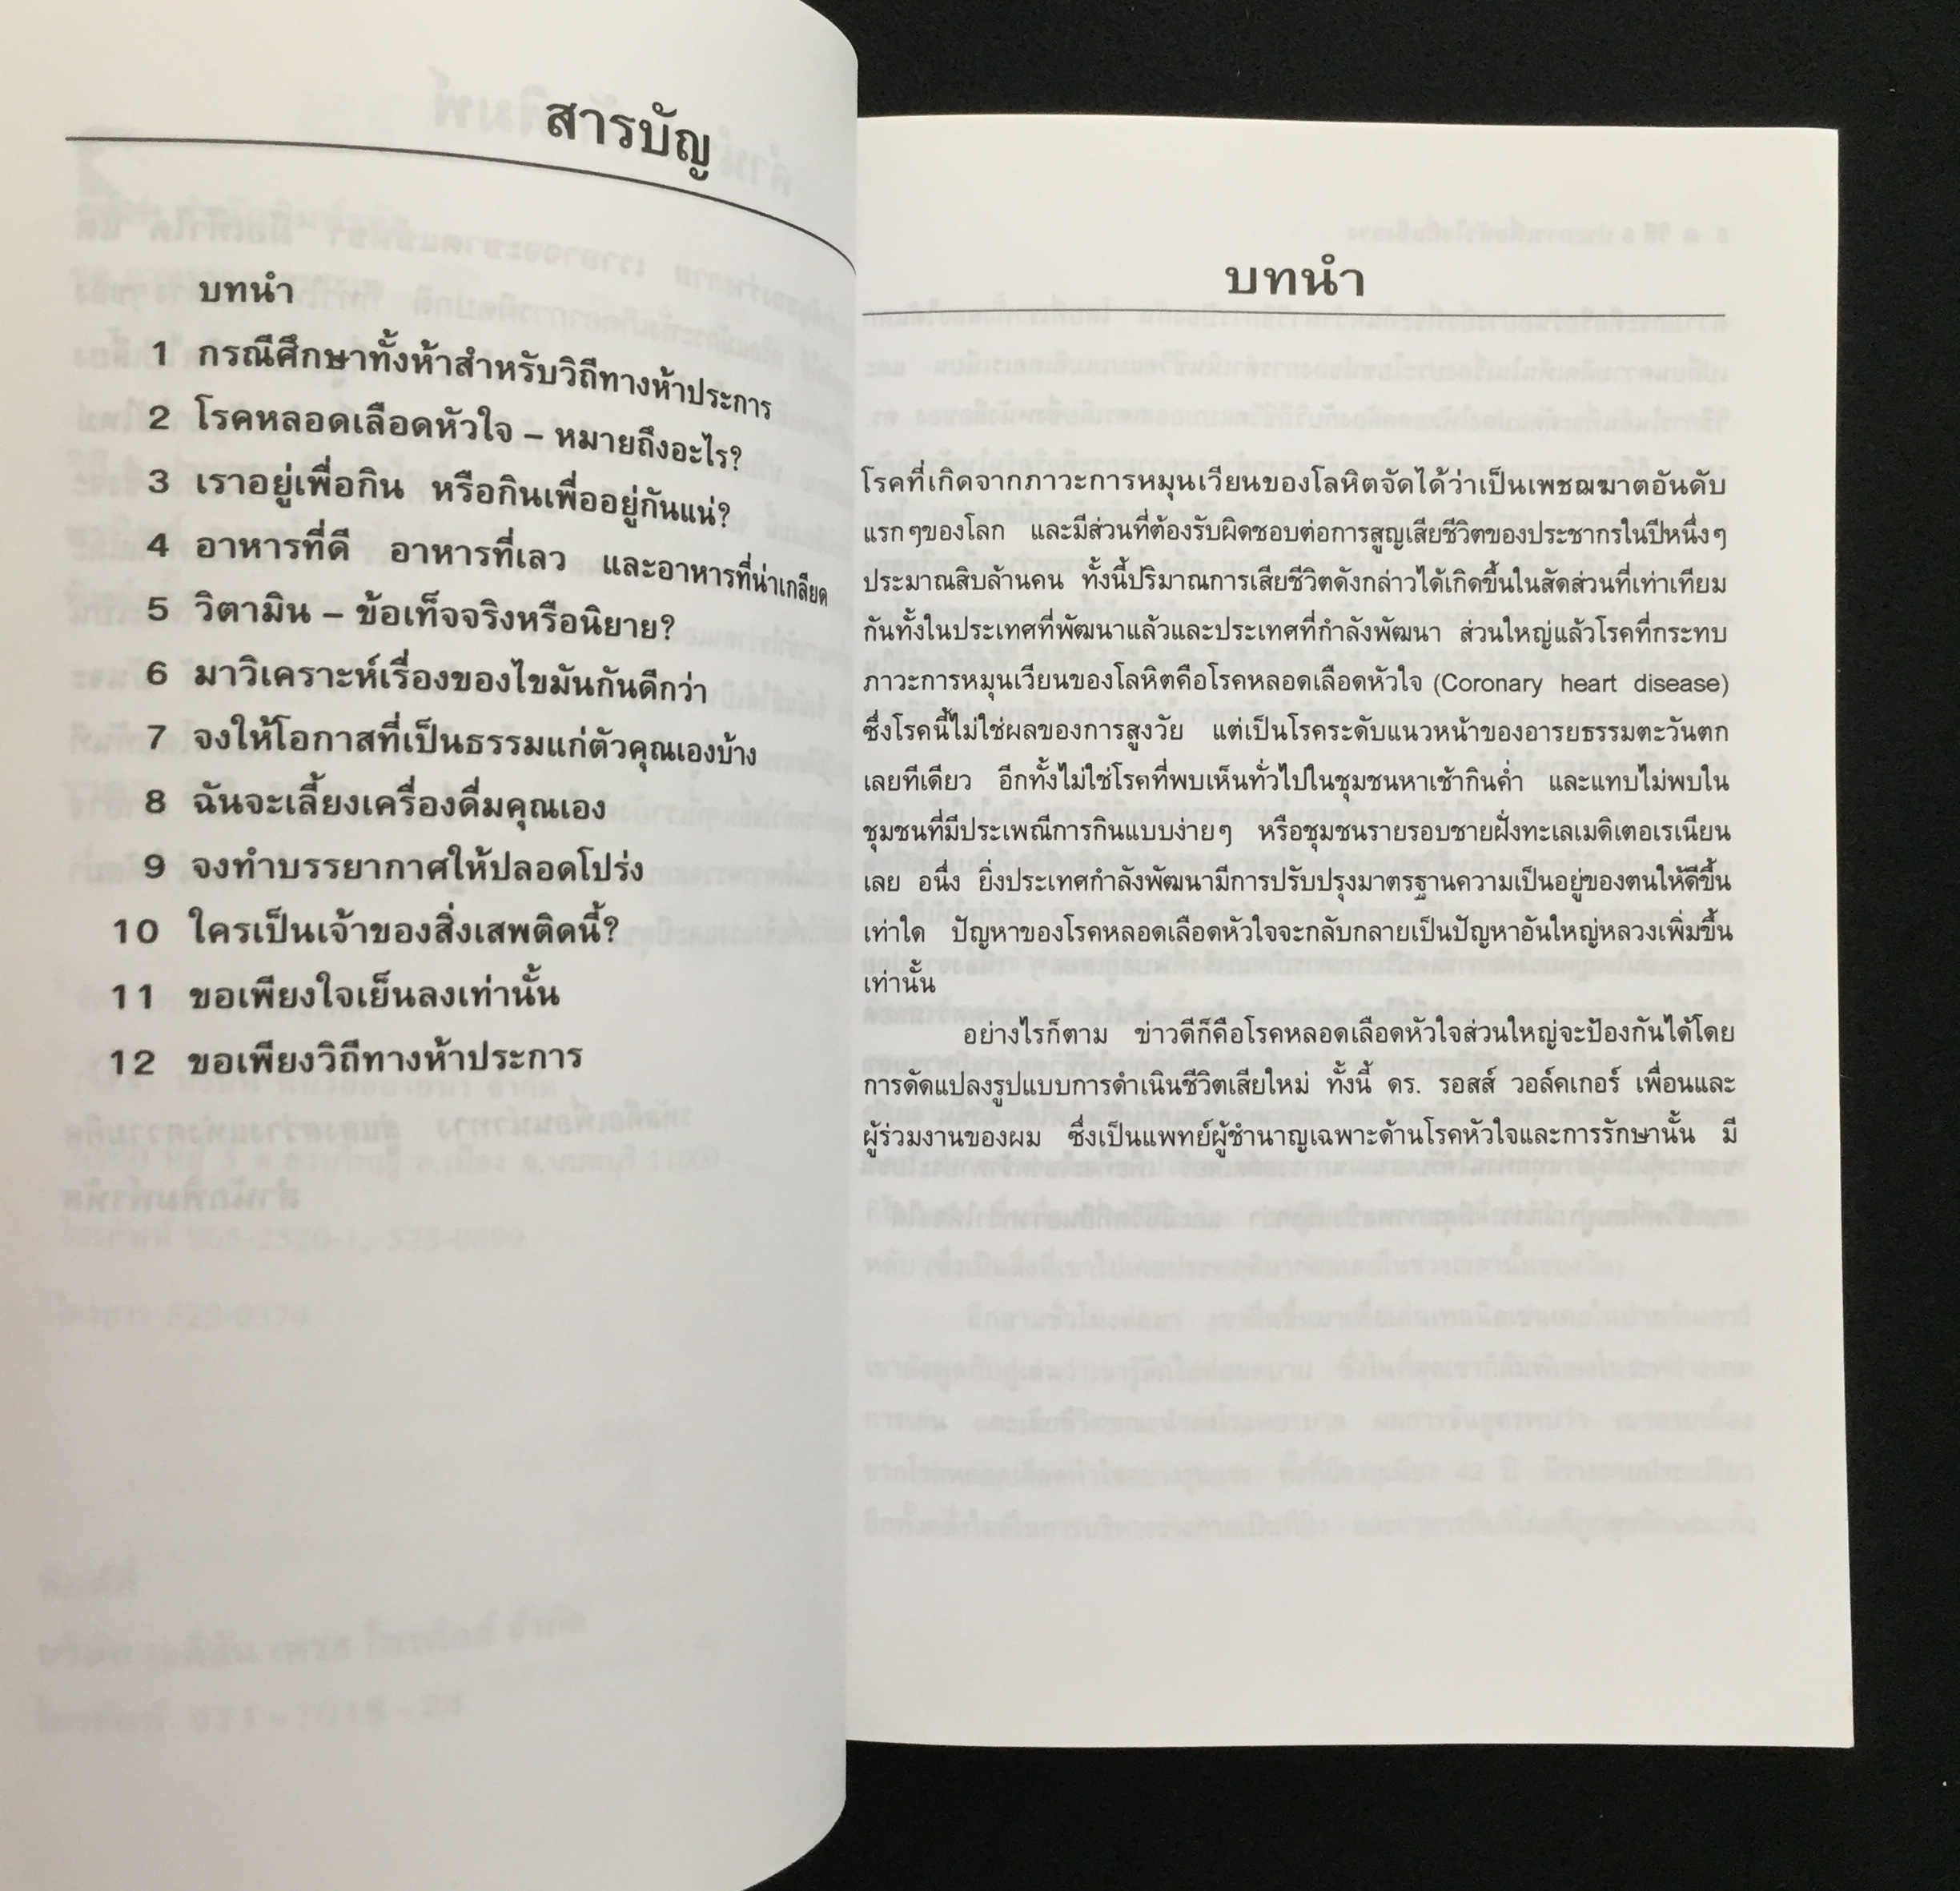 สารบัญ
บทนำ
1 กรณีศึกษาทั้งห้าสำหรับวิถีทางห้าประการ
2 โรคหลอดเลือดหัวใจ – หมายถึงอะไร?
3 เราอยู่เพื่อกิน หรือกินเพื่ออยู่กันแน่?
4 อาหารที่ดี อาหารที่เลว และอาหารที่น่าเกลียด
5 วิตามิน – ข้อเท็จจริงหรือนิยาย?
6 มาวิเคราะห์เรื่องของไขมันกันดีกว่า
7 จงให้โอกาสที่เป็นธรรมแก่ตัวคุณเองบ้าง
8 ฉันจะเลี้ยงเครื่องดื่มคุณเอง
9 จงทำบรรยากาศให้ปลอดโปร่ง
10 ใครเป็นเจ้าของสิ่งเสพติดนี้?
11 ขอเพียงใจเย็นลงเท่านั้น
12 ขอเพียงวิถีทางห้าประการ
บทนำ
โรคที่เกิดจากภาวะการหมุนเวียนของโลหิตจัดได้ว่าเป็นเพชฌฆาตอันดับ
แรกๆของโลก และมีส่วนที่ต้องรับผิดชอบต่อการสูญเสียชีวิตของประชากรในปีหนึ่งๆ
ประมาณสิบล้านคน ทั้งนี้ปริมาณการเสียชีวิตดังกล่าวได้เกิดขึ้นในสัดส่วนที่เท่าเทียม
กันทั้งในประเทศที่พัฒนาแล้วและประเทศที่กำลังพัฒนา ส่วนใหญ่แล้วโรคที่กระทบ
ภาวะการหมุนเวียนของโลหิตคือโรคหลอดเลือดหัวใจ (Coronary heart disease)
ซึ่งโรคนี้ไม่ใช่ผลของการสูงวัย แต่เป็นโรคระดับแนวหน้าของอารยธรรมตะวันตก
เลยทีเดียว อีกทั้งไม่ใช่โรคที่พบเห็นทั่วไปในชุมชนหาเช้ากินค่ำ และแทบไม่พบใน
ชุมชนที่มีประเพณีการกินแบบง่ายๆ หรือชุมชนรายรอบชายฝั่งทะเลเมดิเตอเรเนียน
เลย อนึ่ง ยิ่งประเทศกำลังพัฒนามีการปรับปรุงมาตรฐานความเป็นอยู่ของตนให้ดีขึ้น
เท่าใด ปัญหาของโรคหลอดเลือดหัวใจจะกลับกลายเป็นปัญหาอันใหญ่หลวงเพิ่มขึ้น
เท่านั้น
อย่างไรก็ตาม ข่าวดีก็คือโรคหลอดเลือดหัวใจส่วนใหญ่จะป้องกันได้โดย
การดัดแปลงรูปแบบการดำเนินชีวิตเสียใหม่ ทั้งนี้ ดร. รอสส์ วอล์คเกอร์ เพื่อนและ
ผู้ร่วมงานของผม ซึ่งเป็นแพทย์ผู้ชำนาญเฉพาะด้านโรคหัวใจและการรักษานั้น มี